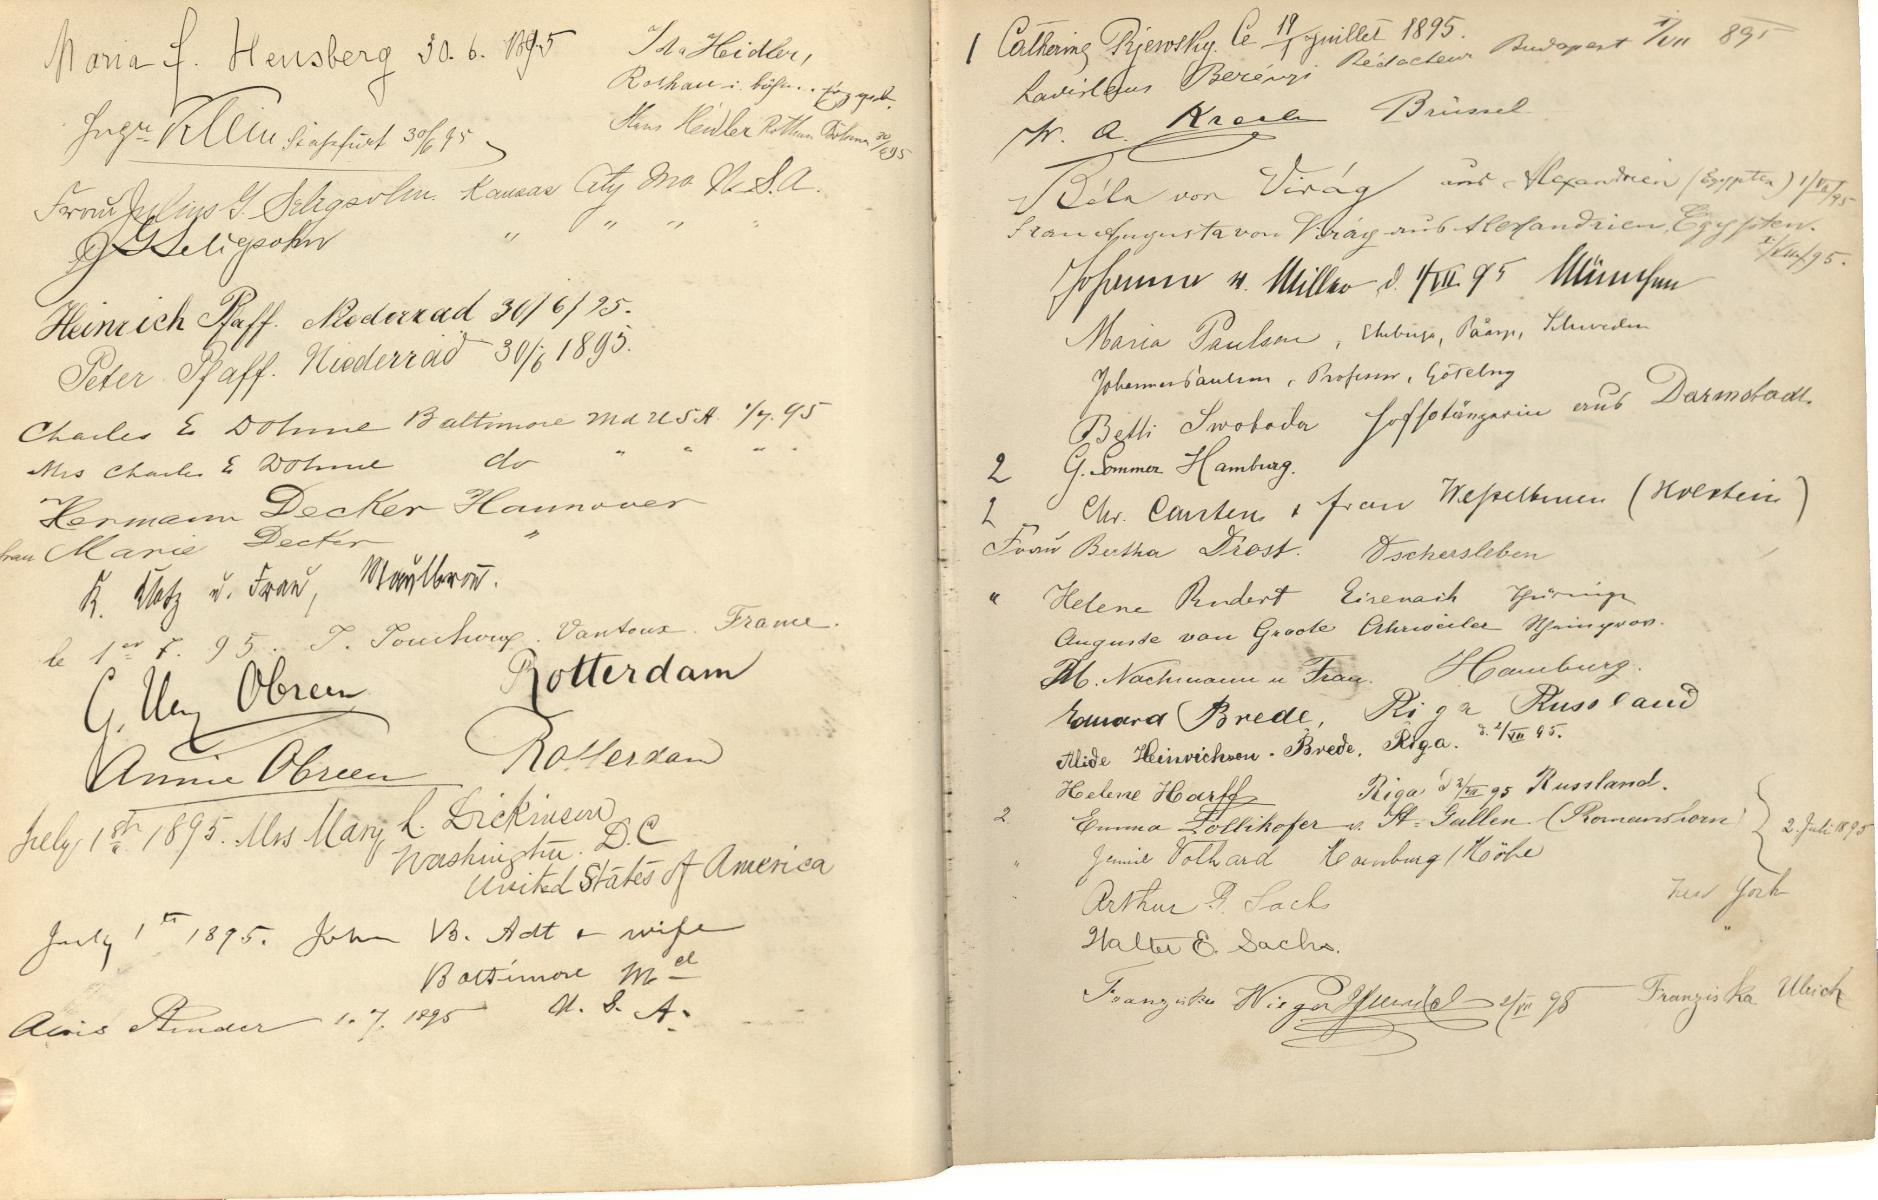 Maria f. Hensberg 30. 6. 1895
Ida Heidler,
Rothau i. böhm.
Hans Heidler Rothau Böhmen 30/6 95
Ingr Klein Stassfurt 30/6 95
Frau Julius G. Seligsohn. Kansas City Mo U. S. A.
J G Seligsohn " " " "
Heinrich Pfaff. Niederrad 30/6/95.
Peter Pfaff. Niederrad 30/6 1895.
Charles E Dohme Baltimore Md USA 1/7. 95
Mrs Charles E Dohme do " " " "
Hermann Decker Hannover
Frau Marie Decker "
K. Klotz u. Frau, Maulbronn.
le 1er 7. 95. Vantoux. France.
G. Obreen Rotterdam
Annie Obreen Rotterdam
July 1st 1895. Mrs Mary L. Dickinson
Washington. D. C
United States of America
July 1st 1895. John B. Adt & wife
Baltimore Md
U. S. A.
Alois 1. 7. 1895
1 Catherine Rjewsky. Ce 19/1 juillet 1895.
Ladislaus Berényi Rédacteur Budapest 1/VII 895
W. A. Brüssel
Béla von Virág aus Alexandrien (Egypten) 1/VII/95
Frau Augusta von Virág aus Alexandrien, Egypten.
1/VII/95.
Johanna v. Miller d. 1/VII. 95 München
Maria Paulson, Råårp, Schweden
Johannes Paulson, Professor, Göteborg
Betti Swoboda aus Darmstadt.
2 G. Sommer Hamburg.
2 Chr. Carstens & frau Wesselburen (Holstein)
Frau Bertha Drost. Oschersleben
" Helene Rudert Eisenach Thüringen
Auguste von Groote Ahrweiler Rheinprov.
M. Nachmann u Frau. Hamburg.
Eduard Brede, Riga Russland
Alide Heinrichsen-Brede, Riga. d. 2/VII 95.
Helene Harff Riga d 2/VII 95 Russland.
2 Emma Zollikofer v. St. Gallen (Romanshorn)
2. Juli 1895
" Jennie Volhard Homburg / Höhe
Arthur Sachs New York
Walter E. Sachs. "
Franziska 2/VII 95 Franziska Ulrich